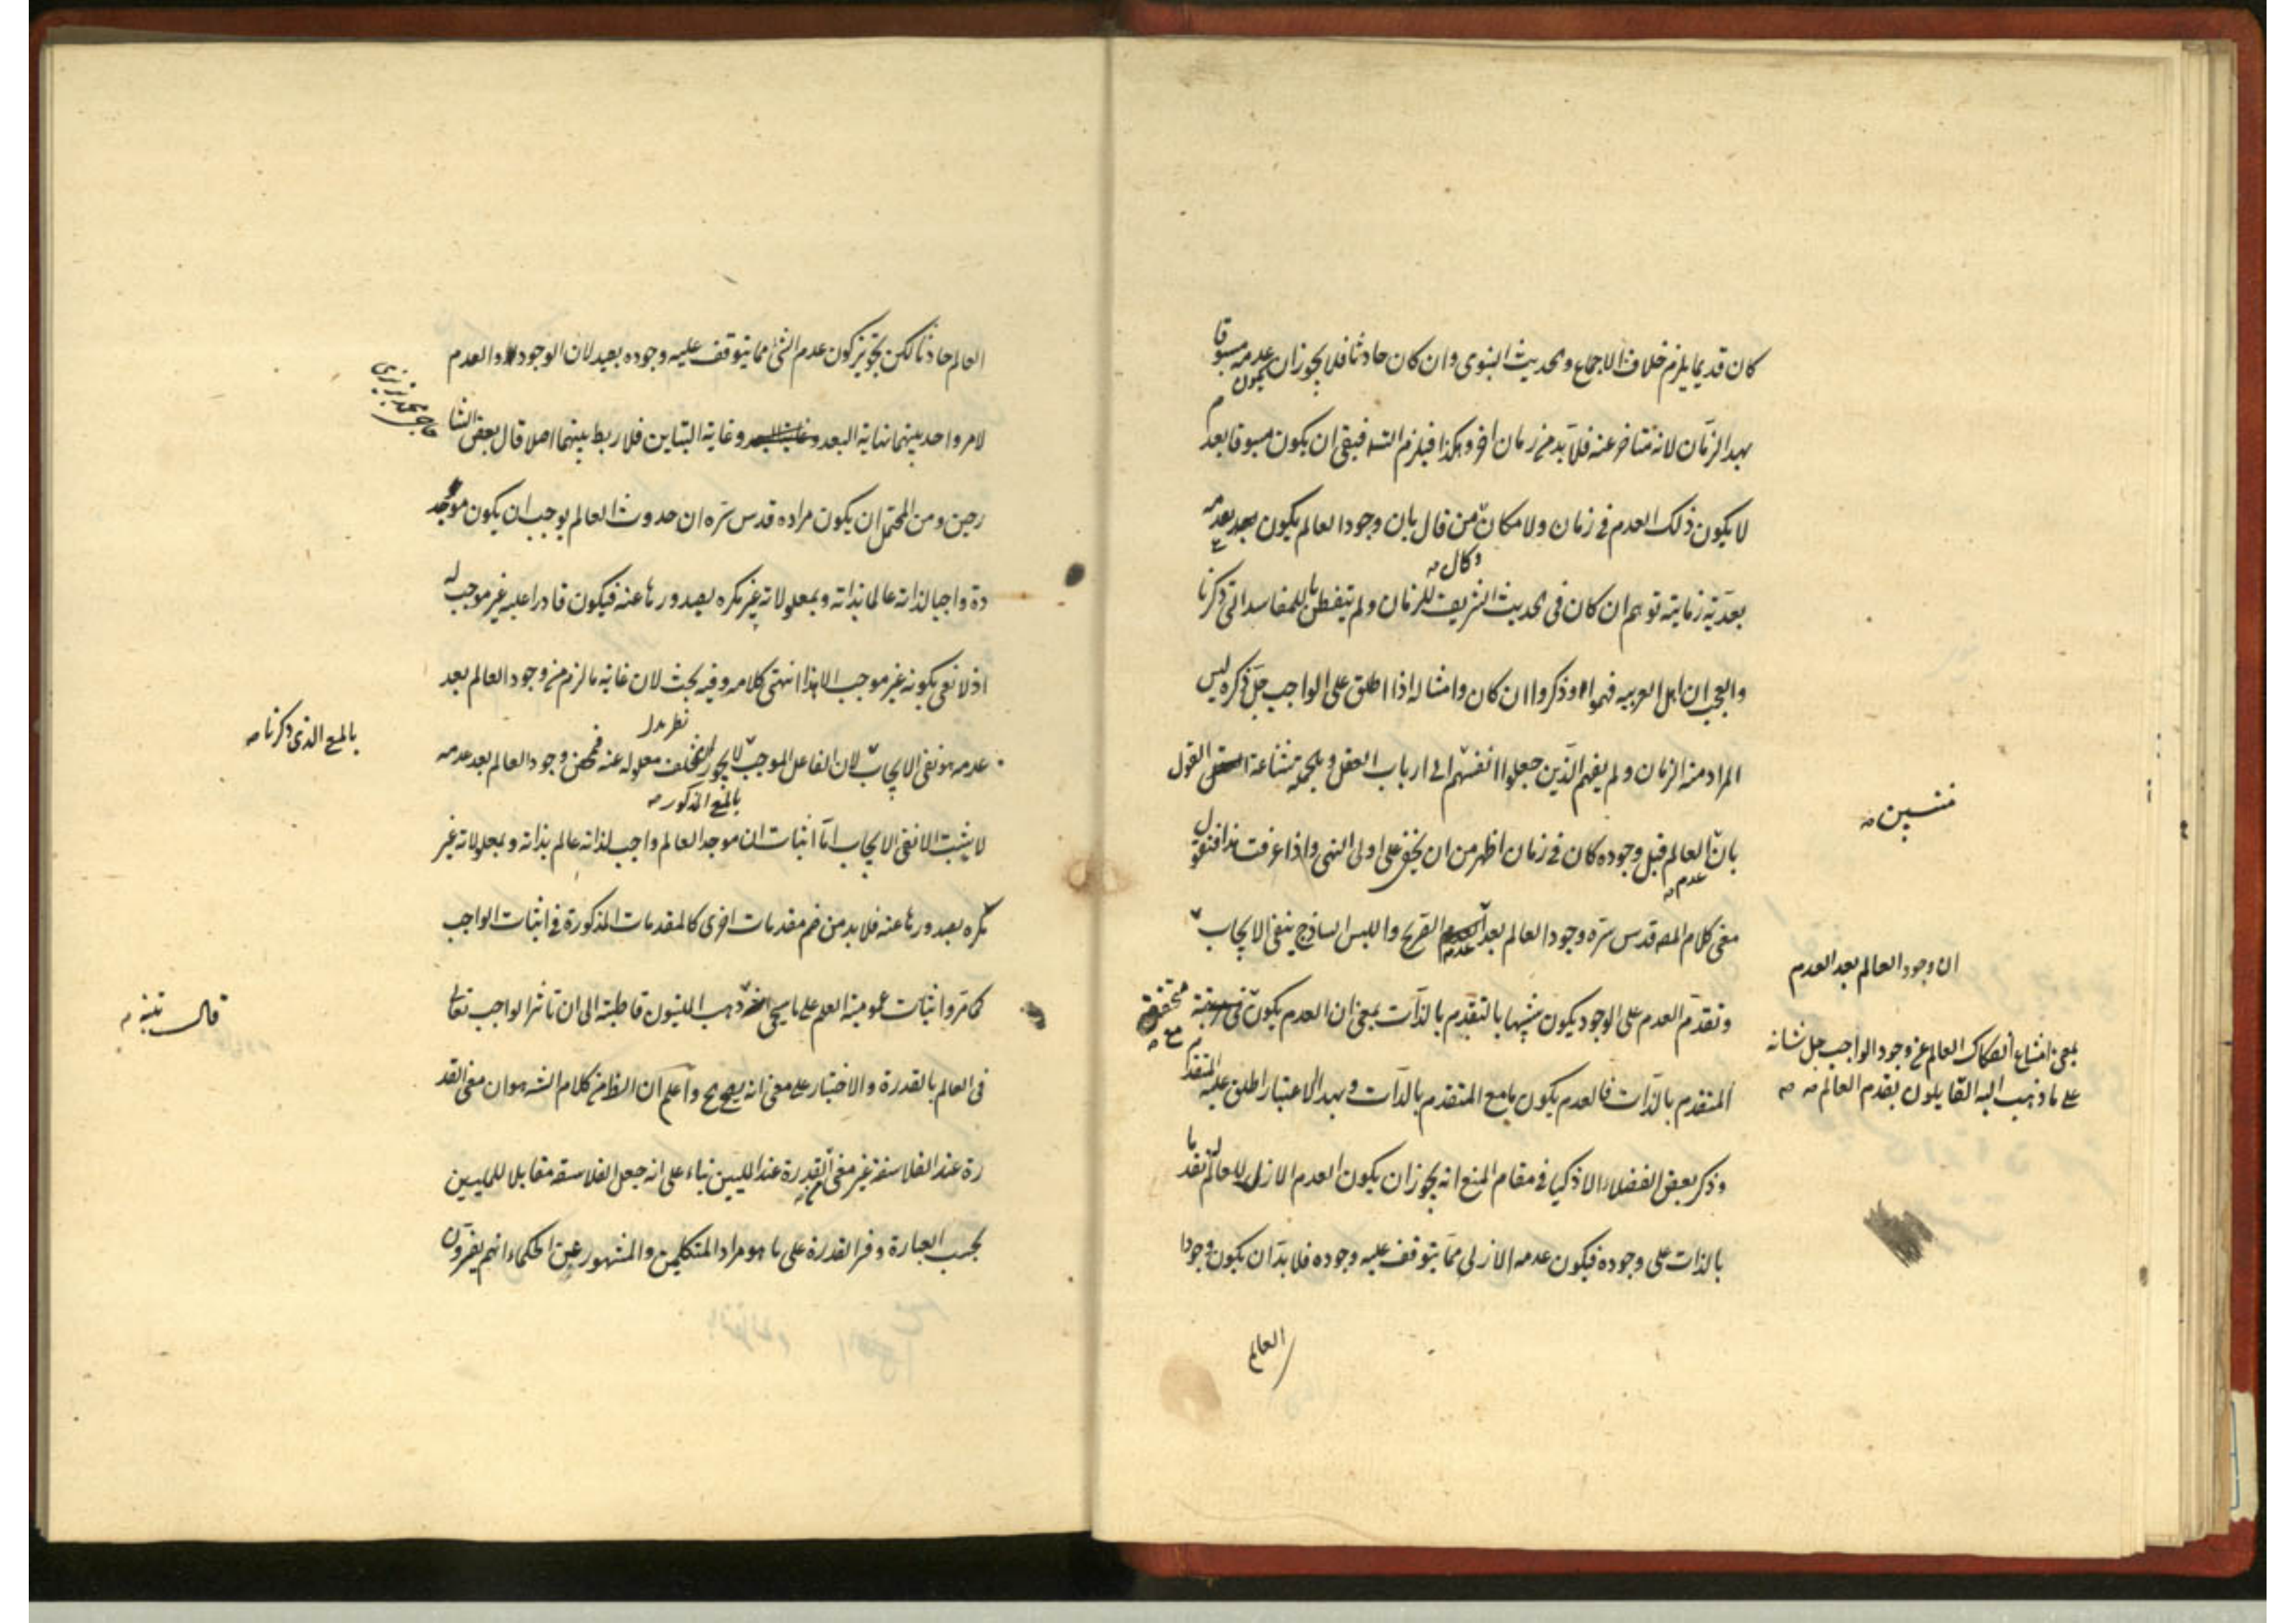 كان قديما يلزم خلاف الاجماع والحديث النبوى وان كان حادثا فلا يجوز ان يكون عدمه مسبوقا
بهذا الزمان لانه متاخر عنه فلا بد من زمان اخر وهكذا فيلزم التسـ فبقى ان يكون مسبوقا بعدم
لا يكون ذلك العدم فى زمان ولا مكان من قال بان وجود العالم يكون بعد عدمه
وكان
بعدية زمانية توهم ان كان فى الحديث الشريف للزمان ولم يتفطن للمفاسد التى ذكرنا
والعجب ان اهل العربيه فهموا وذكروا ان كان وامثاله اذا اطلق على الواجب جل ذكره ليس
المراد منه الزمان ولم يفهم الذين جعلوا انفسهم الى ارباب العقل وبالجمله شناعة القول
منتسبين
بان العالم قبل وجوده كان فى زمان اظهر من ان يخفى على اولى النهى واذا عرفت هذا فنقول
عدم
معنى كلام المصـ قدس سره وجود العالم بعد عدمه الصريح والليس الساذج ينفى الايجاب
ان وجود العالم بعد العدم
وتقدم العدم على الوجود يكون شبيها بالتقدم بالذات بمعنى ان العدم يكون متحققا مع
بمعنى امتناع انفكاك العالم عن وجود الواجب جل شانه
على ما ذهب اليه القايلون بقدم العالم
المتقدم بالذات فالعدم يكون مامع المتقدم بالذات وبهذا الاعتبار اطلق عليه المتقدم
وذكر بعض الفضلاء الاذكيا فى مقام المنع انه يجوز ان يكون العدم الازلى للعالم تقدما
بالذات على وجوده فيكون عدمه الازلى مما يتوقف عليه وجوده فلا بد ان يكون وجود
العالم
العالم حادثا لكن تجويز كون عدم الشئ مما يتوقف عليه وجوده بعيد لان الوجود والعدم
لامر واحد بينهما نهاية البعد وغاية التباين فلا ربط بينهما اصلا قال بعض الشا
رحين ومن المحتمل ان يكون مراده قدس سره ان حدوث العالم يوجب ان يكون موجد
ه واجبا لذاته عالما بذاته وبمعلولاته غير مكره بصدورها عنه فيكون قادرا عليه غير موجب له
اذ لا نعنى بكونه غير موجب الا هذا انتهى كلامه وفيه بحث لان غاية ما لزم من وجود العالم بعد
عدمه هو نفى الايجاب لان الفاعل الموجب لا يجوز تخلف معلوله عنه فمن وجود العالم بعد عدمه
بالمعنى الذى ذكرنا
بالمعنى المذكور
لا يثبت الا نفى الايجاب اما اثبات ان موجد العالم واجب لذاته عالم بذاته وبمعلولاته غير
مكره بصدورها عنه فلا بد من ضم مقدمات اخرى كالمقدمات المذكورة فى اثبات الواجب
كما مر واثبات عمومية العلم على ما سيجئ ذهب المليون قاطبة الى ان تاثير الواجب تعالى
فى العالم بالقدرة والاختيار على معنى انه يصح واعلم ان الظ من كلام الشـ هو ان معنى القد
رة عند الفلاسفة غير معنى القدرة عند المليين بناء على انه جعل الفلاسفه مقابلا للمليين
بحسب العبارة وفسر القدرة على ما هو مراد المتكلمين والمشهور عن الحكماء انهم يفسرون